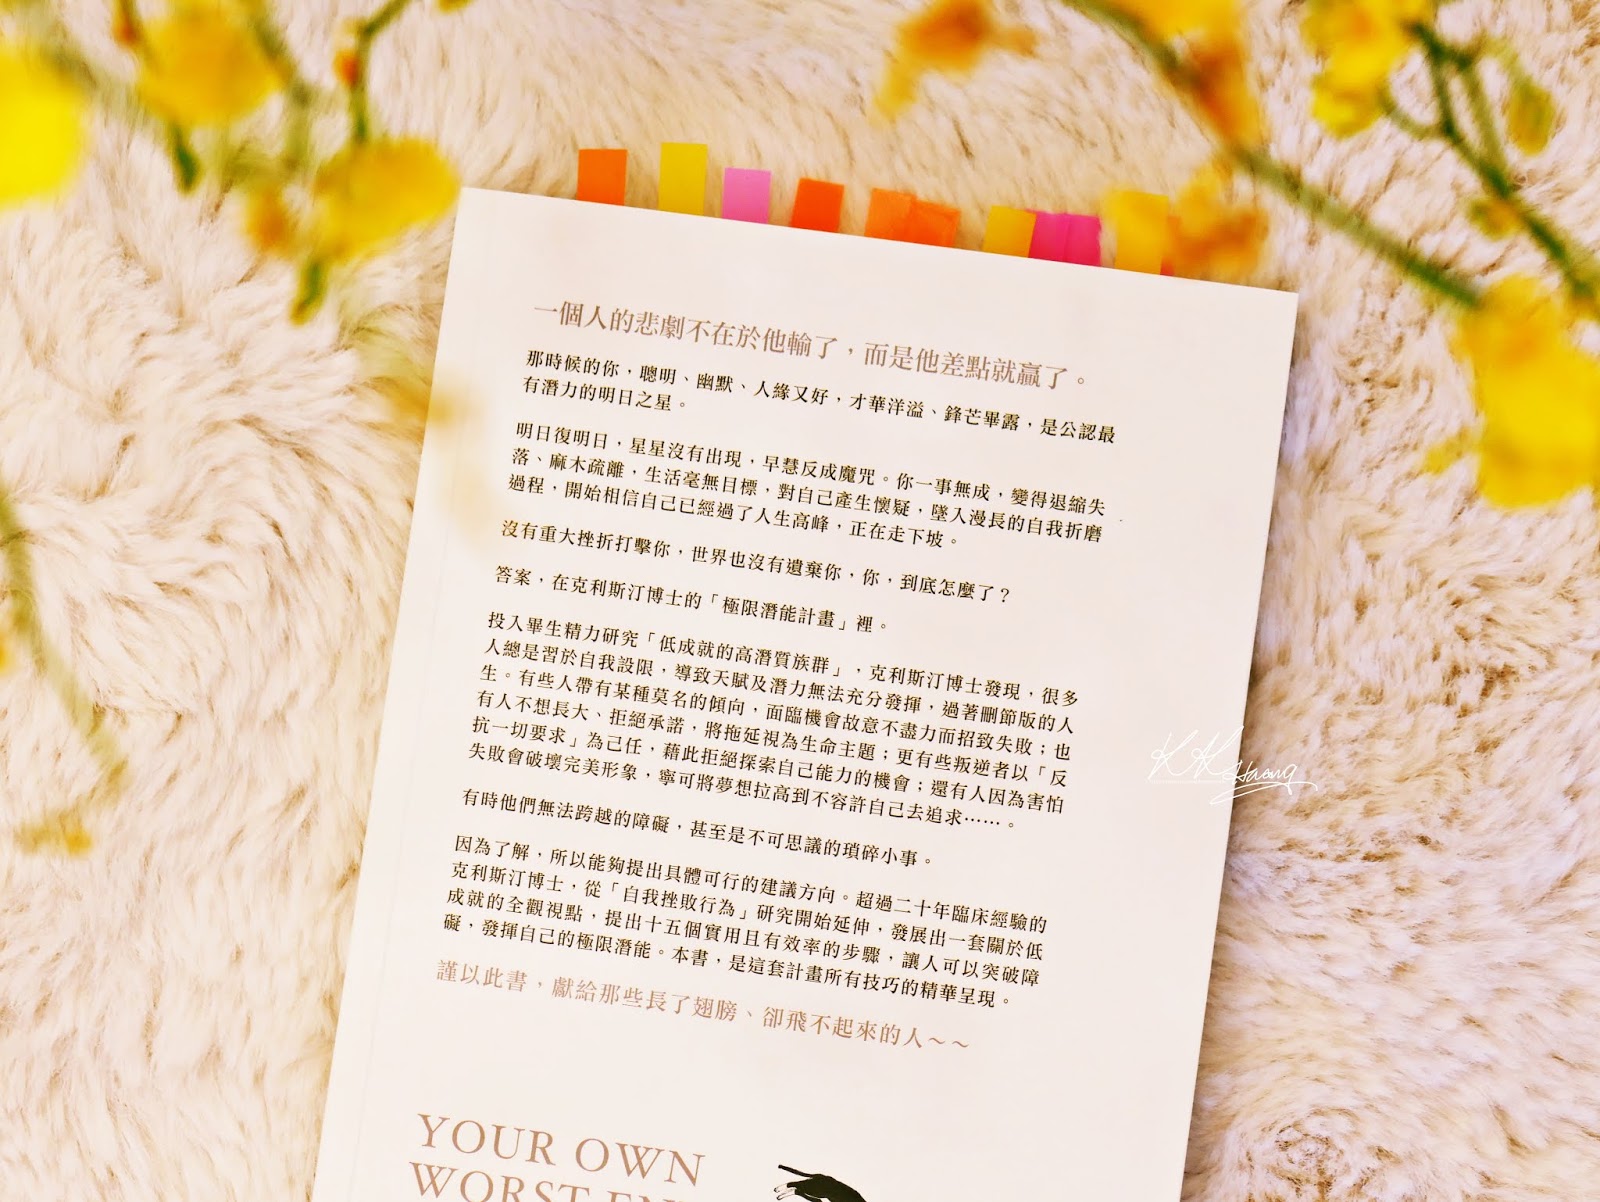 一個人的悲劇不在於他輸了，而是他差點就贏了。
那時候的你，聰明、幽默、人緣又好，才華洋溢、鋒芒畢露，是公認最
有潛力的明日之星。
明日復明日，星星沒有出現，早慧反成魔咒。你一事無成，變得退縮失
落、麻木疏離，生活毫無目標，對自己產生懷疑，墜入漫長的自我折磨
過程，開始相信自己已經過了人生高峰，正在走下坡。
沒有重大挫折打擊你，世界也沒有遺棄你，你，到底怎麼了？
答案，在克利斯汀博士的「極限潛能計畫」裡。
投入畢生精力研究「低成就的高潛質族群」，克利斯汀博士發現，很多
人總是習於自我設限，導致天賦及潛力無法充分發揮，過著刪節版的人
生。有些人帶有某種莫名的傾向，面臨機會故意不盡力而招致失敗；也
有人不想長大、拒絕承諾，將拖延視為生命主題；更有些叛逆者以「反
抗一切要求」為己任，藉此拒絕探索自己能力的機會；還有人因為害怕
失敗會破壞完美形象，寧可將夢想拉高到不容許自己去追求……。
有時他們無法跨越的障礙，甚至是不可思議的瑣碎小事。
因為了解，所以能夠提出具體可行的建議方向。超過二十年臨床經驗的
克利斯汀博士，從「自我挫敗行為」研究開始延伸，發展出一套關於低
成就的全觀視點，提出十五個實用且有效率的步驟，讓人可以突破障
礙，發揮自己的極限潛能。本書，是這套計畫所有技巧的精華呈現。
謹以此書，獻給那些長了翅膀、卻飛不起來的人～～
YOUR OWN
WORST EN
KK Huang